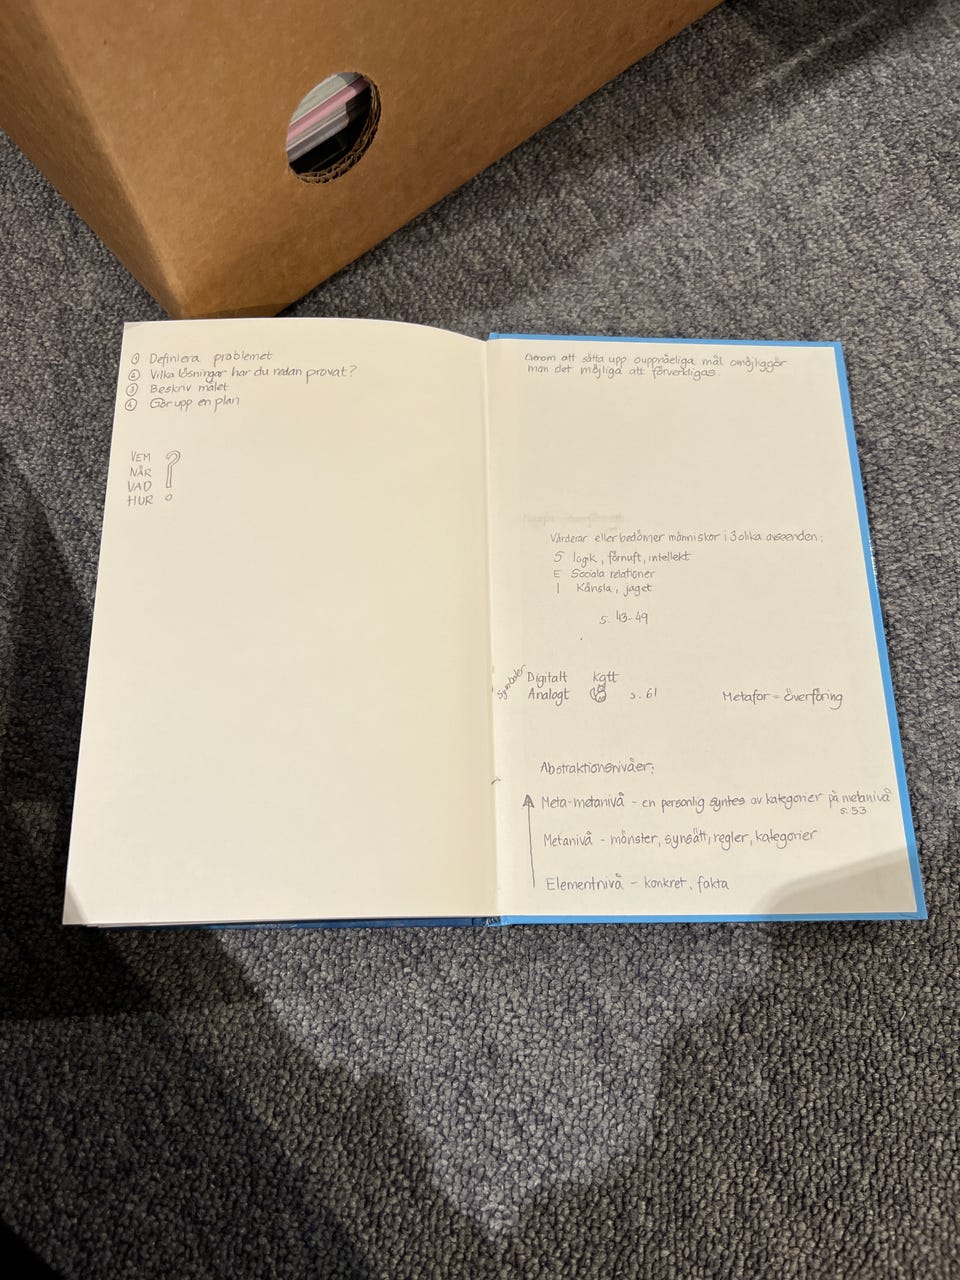 ① Definiera problemet
② Vilka lösningar har du redan provat?
③ Beskriv målet
④ Gör upp en plan
VEM
NÄR
VAD
HUR
?
Genom att sätta upp ouppnåeliga mål omöjliggör
man det möjliga att förverkligas.
Värderar eller bedömer människor i 3 olika avseenden:
S logik, förnuft, intellekt
E Sociala relationer
I Känsla, jaget
s. 43-49
Symboler
Digitalt Katt
Analogt s. 61 Metafor = överföring
Abstraktionsnivåer:
Meta-metanivå - en personlig syntes av kategorier på metanivå
s. 53
Metanivå - mönster, synsätt, regler, kategorier
Elementnivå - konkret, fakta